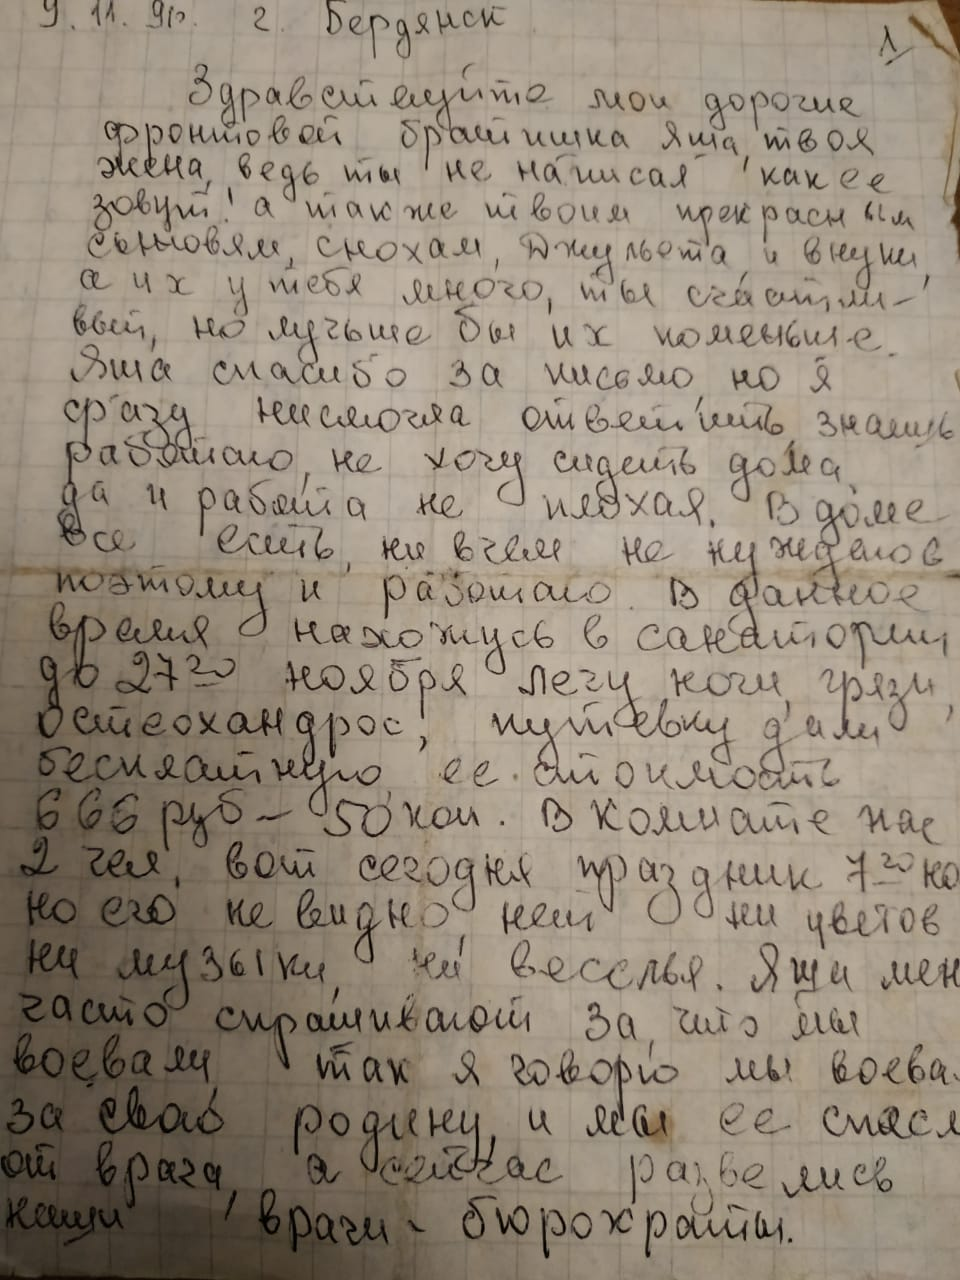 9.11.91г. г. Бердянск
1
Здравствуйте мои дорогие
фронтовой братишка Яша, твоя
жена, ведь ты не написал как ее
зовут! а также твоим прекрасным
сыновям, снохам, Джульета и внуки,
а их у тебя много, ты счастли-
вый, но лучьше бы их поменьше.
Яша спасибо за письмо, но я
сразу нисмогла ответить, знаишь
работаю, не хочу сидеть дома,
да и работа не плохая. В доме
все есть, ни вчем не нуждаюсь
поэтому и работаю. В данное
время нахожусь в санатории
до 27го ноября лечу ноги, грязи,
остеохандрос, путевку дали
бесплатную, ее стоимость
666 руб – 50 коп. В комнате нас
2 чел, вот сегодня праздник 7го но
но его не видно, нет ни цветов
ни музыки, ни веселья. Яша мен
часто спрашивают За что мы
воевали, так я говорю мы воева
за свою родину, и мы ее спасл
от врага, а сейчас развелись
наши врачи - бюрохраты.